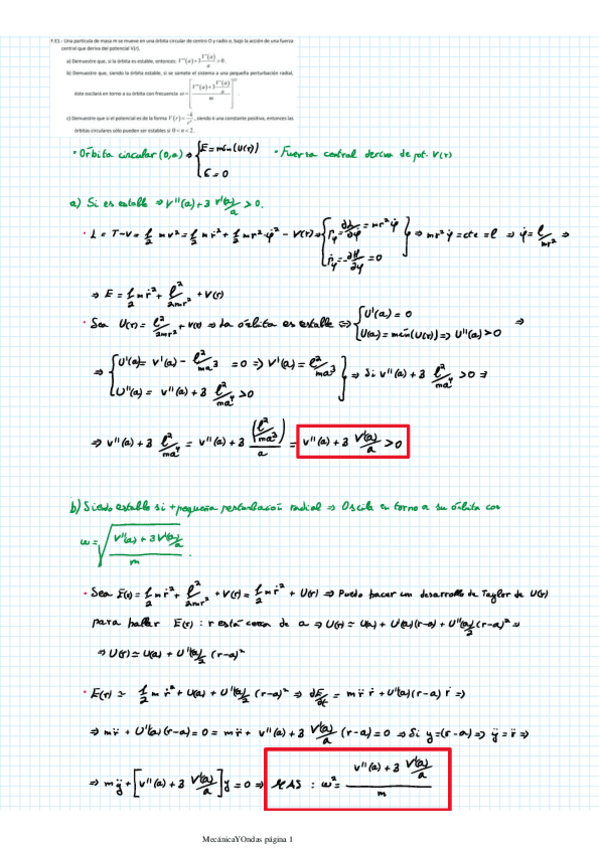 P.E1.- Una partícula de masa m se mueve en una órbita circular de centro O y radio a, bajo la acción de una fuerza
central que deriva del potencial V(r).
a) Demuestre que, si la órbita es estable, entonces: V''(a)+3 V'(a)/a > 0.
b) Demuestre que, siendo la órbita estable, si se somete el sistema a una pequeña perturbación radial,
éste oscilará en torno a su órbita con frecuencia: ω = [(V''(a)+3 V'(a)/a)/m]^1/2.
c) Demuestre que si el potencial es de la forma V(r) = -k/r^n, siendo k una constante positiva, entonces las
órbitas circulares sólo pueden ser estables si 0 < n < 2.
• Órbita circular (0,a) ⇒ { E = mín(U(r)) • Fuerza central deriva de pot. V(r)
= 0
a) Si es estable ⇒ V''(a) + 3 V'(a)/a > 0.
• L = T-V = 1/2 m v² = 1/2 m ṙ² + 1/2 m r² φ̇² - V(r) ⇒ { Pφ = ∂L/∂φ̇ = m r² φ̇ } ⇒ m r² φ̇ = cte = l ⇒ φ̇ = l/mr² ⇒
Ṗφ = ∂L/∂φ = 0
⇒ E = 1/2 m ṙ² + l²/2mr² + V(r)
• Sea U(r) = l²/2mr² + V(r) ⇒ La órbita es estable ⇔ { U'(a) = 0 ⇒
U(a) = mín(U(r)) ⇒ U''(a) > 0
⇒ { U'(a) = V'(a) - l²/ma³ = 0 ⇒ V'(a) = l²/ma³ } ⇒ Si V''(a) + 3 l²/ma⁴ > 0 ⇒
U''(a) = V''(a) + 3 l²/ma⁴ > 0
⇒ V''(a) + 3 l²/ma⁴ = V''(a) + 3 (l²/ma³)/a = V''(a) + 3 V'(a)/a > 0
b) Siendo estable si + pequeña perturbación radial ⇒ Oscila en torno a su órbita con
ω = √((V''(a) + 3V'(a)/a)/m).
• Sea E(r) = 1/2 m ṙ² + l²/2mr² + V(r) = 1/2 m ṙ² + U(r) ⇒ Puedo hacer un desarrollo de Taylor de U(r)
para hallar E(r) : r está cerca de a ⇒ U(r) ≃ U(a) + U'(a)(r-a) + U''(a)/2 (r-a)² ⇒
⇒ U(r) ≃ U(a) + U''(a)/2 (r-a)²
• E(r) ≃ 1/2 m ṙ² + U(a) + U''(a)/2 (r-a)² ⇒ ∂E/∂t = m r̈ ṙ + U''(a)(r-a) ṙ ⇒
⇒ m r̈ + U''(a)(r-a) = 0 = m r̈ + V''(a) + 3 V'(a)/a (r-a) = 0 ⇒ Si y = (r-a) ⇒ ÿ = r̈ ⇒
⇒ m ÿ + [V''(a) + 3 V'(a)/a] y = 0 ⇒ MAS : ω² = (V''(a) + 3 V'(a)/a)/m
MecánicaYOndas página 1